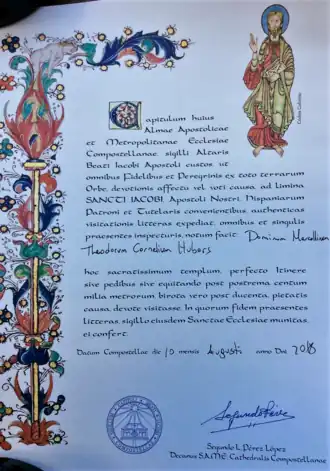 Capitulum huius
Almae Apostolicae
et Metropolitanae Ecclesiae
Compostellanae, sigilli Altaris
Beati Iacobi Apostoli custos, ut
omnibus Fidelibus et Peregrinis ex toto terrarum
Orbe, devotionis affectu vel voti causa, ad limina
SANCTI IACOBI, Apostoli Nostri, Hispaniarum
Patroni et Tutelaris convenientibus, authenticas
visitationis litteras expediat, omnibus et singulis
praesentes inspecturis, notum facit: Dominum Marcellinum
Theodorum Cornelium Hubers
hoc sacratissimum templum, perfecto Itinere
sive pedibus sive equitando post postrema centum
milia metrorum, birota vero post ducenta, pietatis
causa, devote visitasse. In quorum fidem praesentes
litteras, sigillo eiusdem Sanctae Ecclesiae munitas,
ei confert.
Datum Compostellae die mensis Augusti anno Dni 2018
Segundo L. Pérez López
Decanus S.A.M.E. Cathedralis Compostellanae
Codex Calixtinus